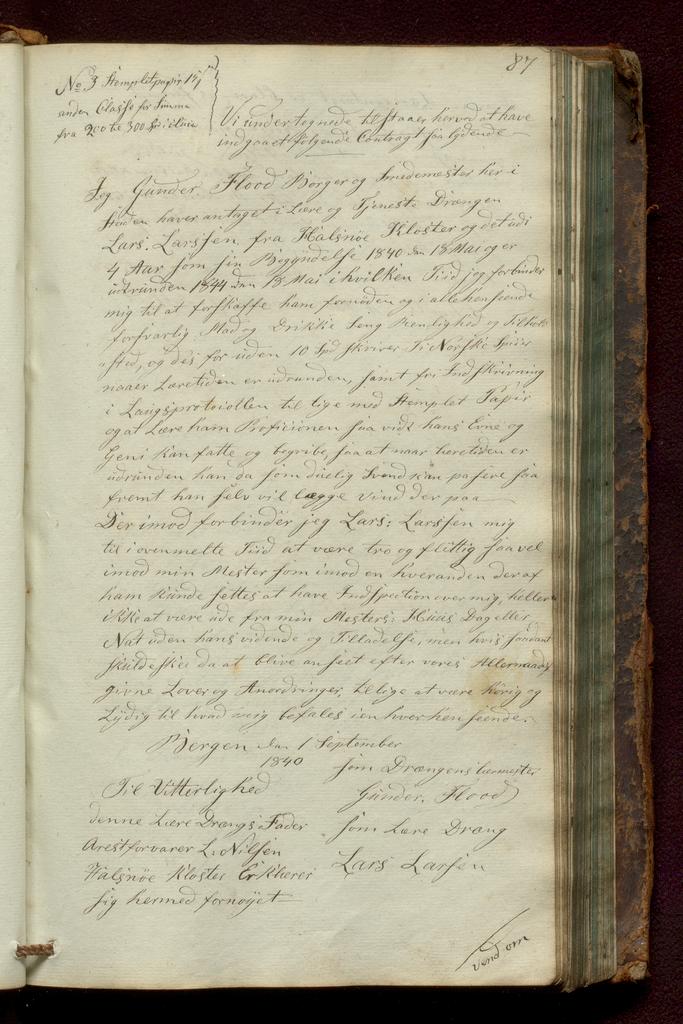 87
No. 3 Stemplet papir
anden Classe for Summa
fra 200 til 300 Spd inclusive
Vi undertegnede tilstaaer herved at have
indgaaet følgende Contragt saa lydende
Jeg Gunder Flood Borger og Smedemester her i
Staden haver antaget i Lære og Tjeneste Drængen
Lars. Larssen fra Halsnöe Kloster og det udi
4 Aar som sin Begyndelse 1840 den 18 Mai og er
udrunden 1844 den 18 Mai i hvilken Tiid jeg forbinder
mig til at forskaffe ham fornøden og i alle henseende
forsvarlig Mad og Drikke Seng Reenlighed og Tilhold
sted, og des for uden 10 Spd skriver Ti Norske Spesier
naaer Læretiden er udrunden, samt fri Indskrivning
i Laugsprotocollen til lige med Stemplet Papir
og at Lære ham Profesionen saa vidt hans Evne og
Geni kan fatte og begribe, saa at naar læretiden er
udrunden han da som duelig Svend kan pasere saa
fremt han selv vil lægge vind der paa
Der imod forbinder jeg Lars: Larssen mig
til i ovenmelte Tiid at være tro og flittig saavel
imod min Mester som imod en hver anden der af
ham kunde settes at have Indspection over mig, heller
ikke at være ude fra min Mesters Huus Dag eller
Nat uden hans vidende og Tilladelse, men hvis saadant
skulde skee da at blive anseet efter vores Allernaadigst
givne Lover og Anordninger, til lige at være hørig og
Lydig til hvad mig befales i en hver hen seende.
Bergen den 1 September
1840
som Drængens læremester
Til Vitterlighed
Gunder. Flood
denne Lære Drængs Fader
som Lære Dræng
Arestforvarer L. Nilsen
Lars Larsen
Halsnöe Kloster Erklærer
sig hermed fornøyet
vend om